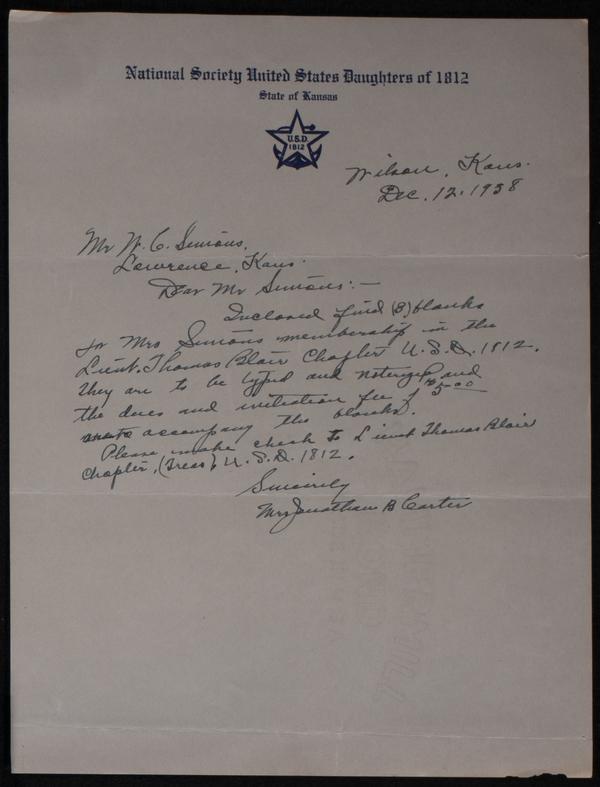 National Society United States Daughters of 1812
State of Kansas
U.S.D.
1812
Wilson, Kans.
Dec. 12, 1938
Mr W. C. Simons,
Lawrence, Kans.
Dear Mr Simons:—
Inclosed find (3) blanks
for Mrs Simons membership in the
Lieut. Thomas Blair Chapter U.S.D. 1812.
They are to be typed and noterized and
the dues and initiation fee of $5.00
accompany the blanks.
Please make check to Lieut Thomas Blair
Chapter, (Treas), U.S.D. 1812.
Sincerely
Mrs Jonathan B Carter